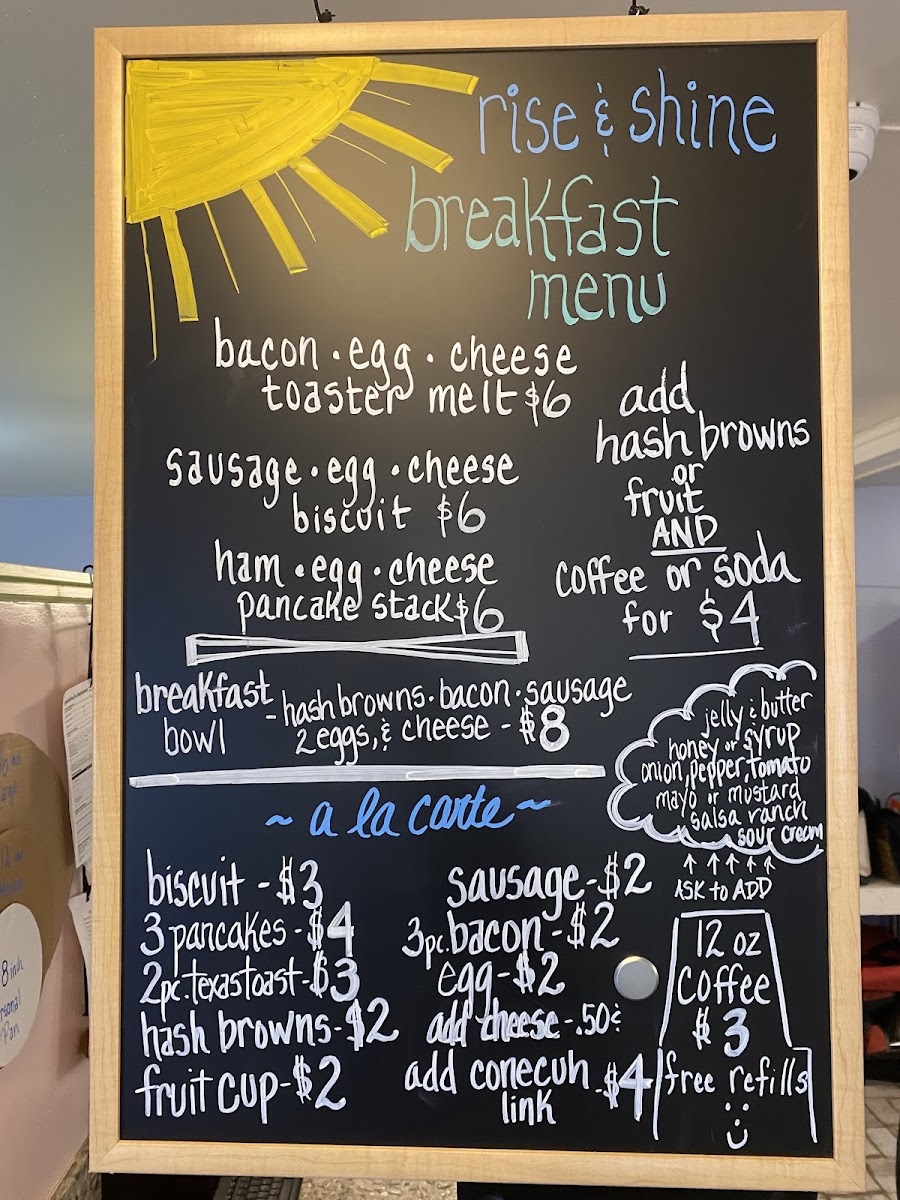 rise & shine
breakfast
menu
bacon • egg • cheese
toaster melt $6
sausage • egg • cheese
biscuit $6
ham • egg • cheese
pancake stack $6
add
hash browns
or
fruit
AND
coffee or soda
for $4
breakfast
bowl
- hash browns • bacon • sausage
2 eggs, & cheese - $8
jelly & butter
honey or syrup
onion, pepper, tomato
mayo or mustard
salsa ranch
sour cream
ASK to ADD
~ a la carte ~
biscuit - $3
3 pancakes - $4
2pc. texas toast - $3
hash browns - $2
fruit cup - $2
sausage - $2
3pc. bacon - $2
egg - $2
add cheese - .50¢
add conecuh
link - $4
12 oz
coffee
$3
free refills
8 inch
Pan